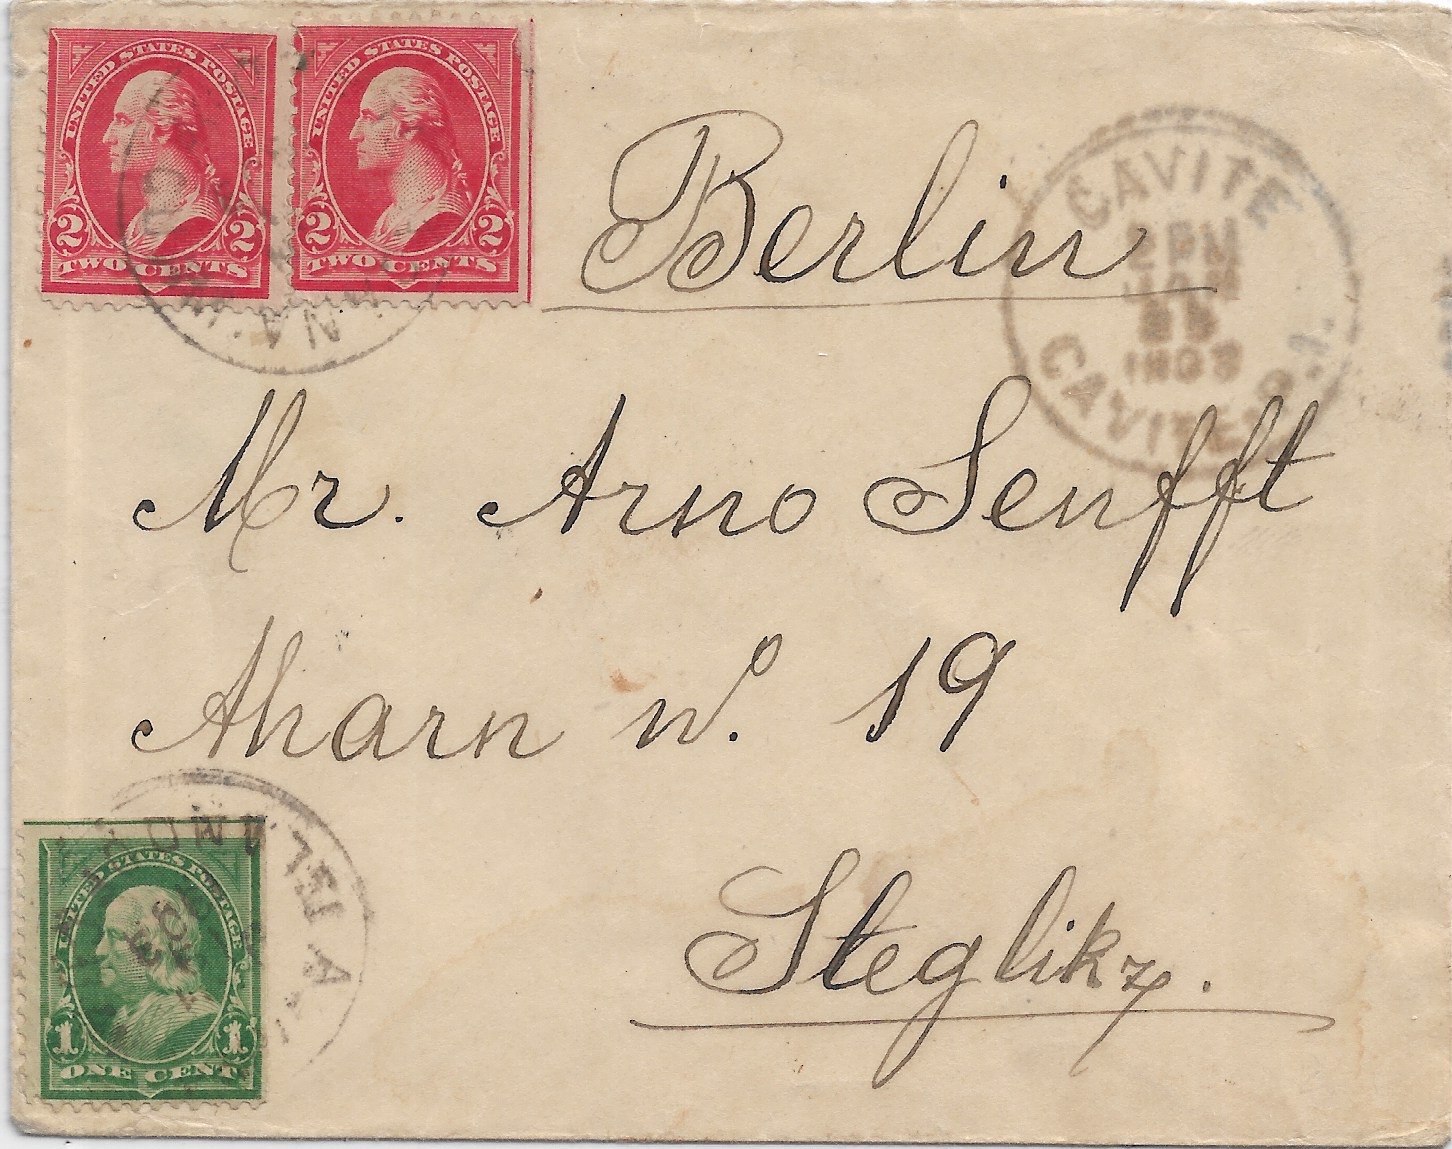 UNITED STATES POSTAGE
2 2
TWO CENTS
UNITED STATES POSTAGE
2 2
TWO CENTS
CAVITE
CAVITE
Berlin
Mr. Arno Senfft
Aharn No. 19
Steglikz.
UNITED STATES POSTAGE
1 1
ONE CENT